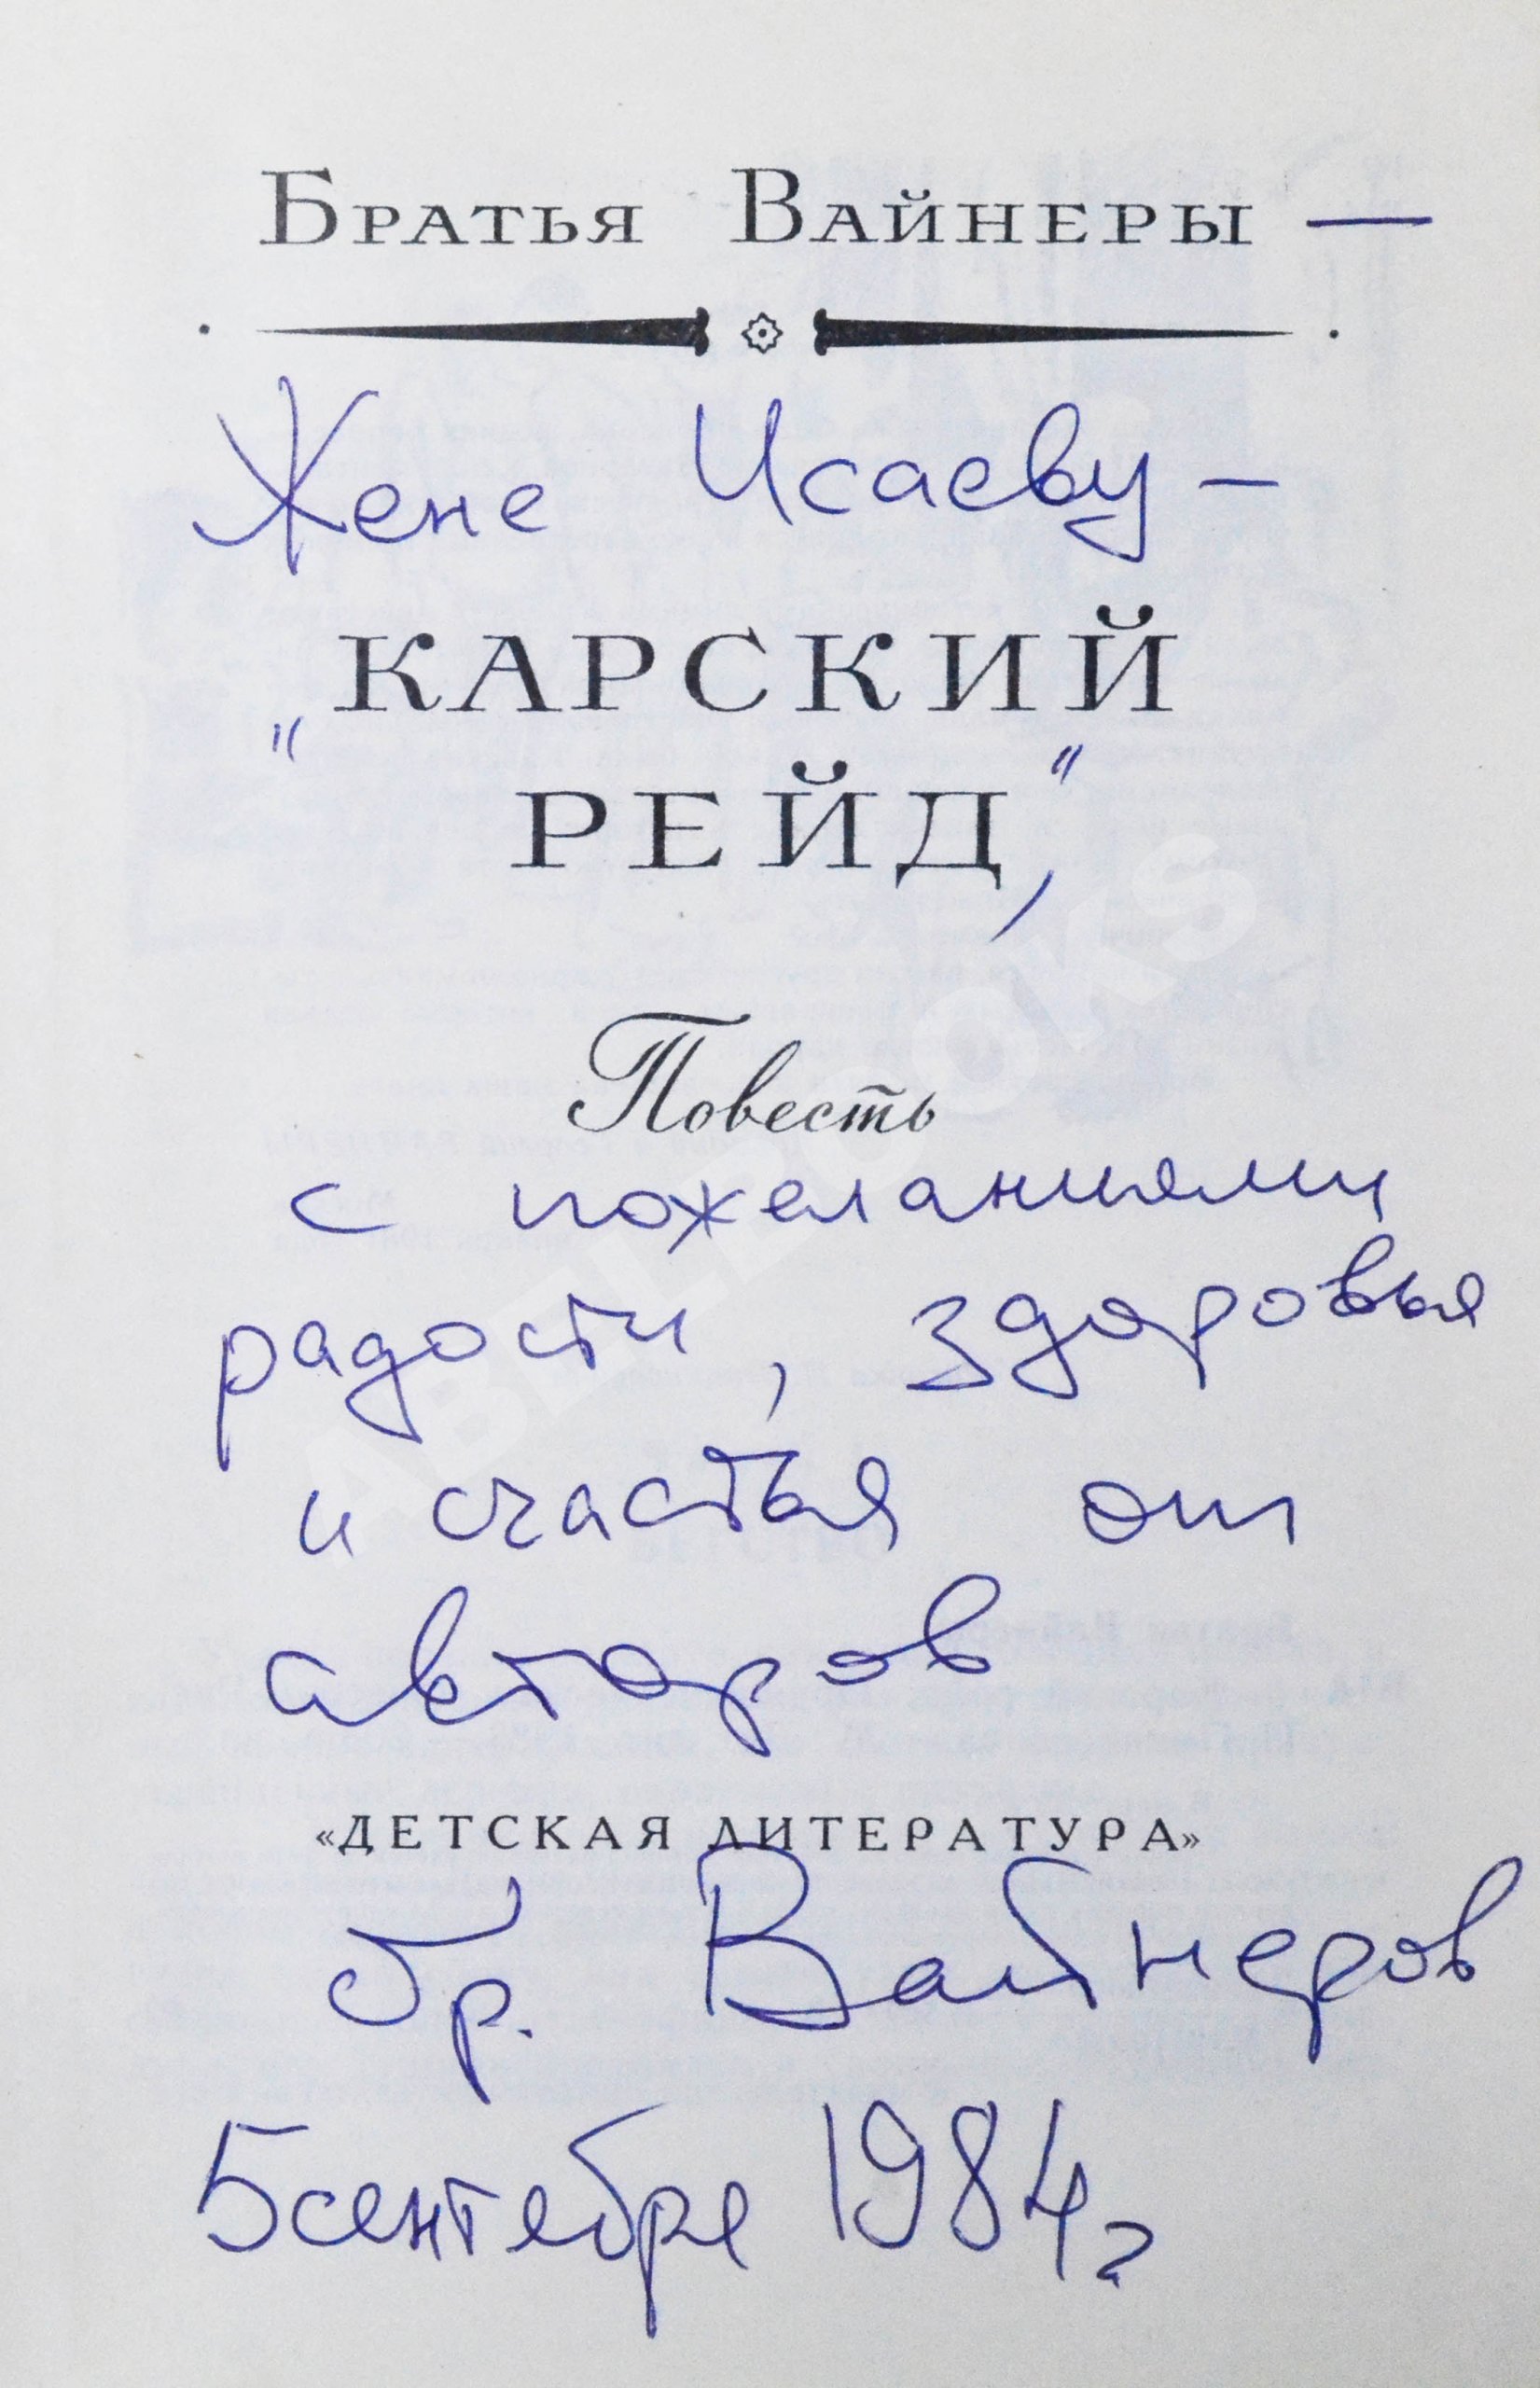 Братья Вайнеры —
Жене Исаеву —
КАРСКИЙ
"РЕЙД",
Повесть
с пожеланиями
радости, здоровья
и счастья от
авторов
«ДЕТСКАЯ ЛИТЕРАТУРА»
бр. Вайнеров
5 сентября 1984 г
ABELBOOKS